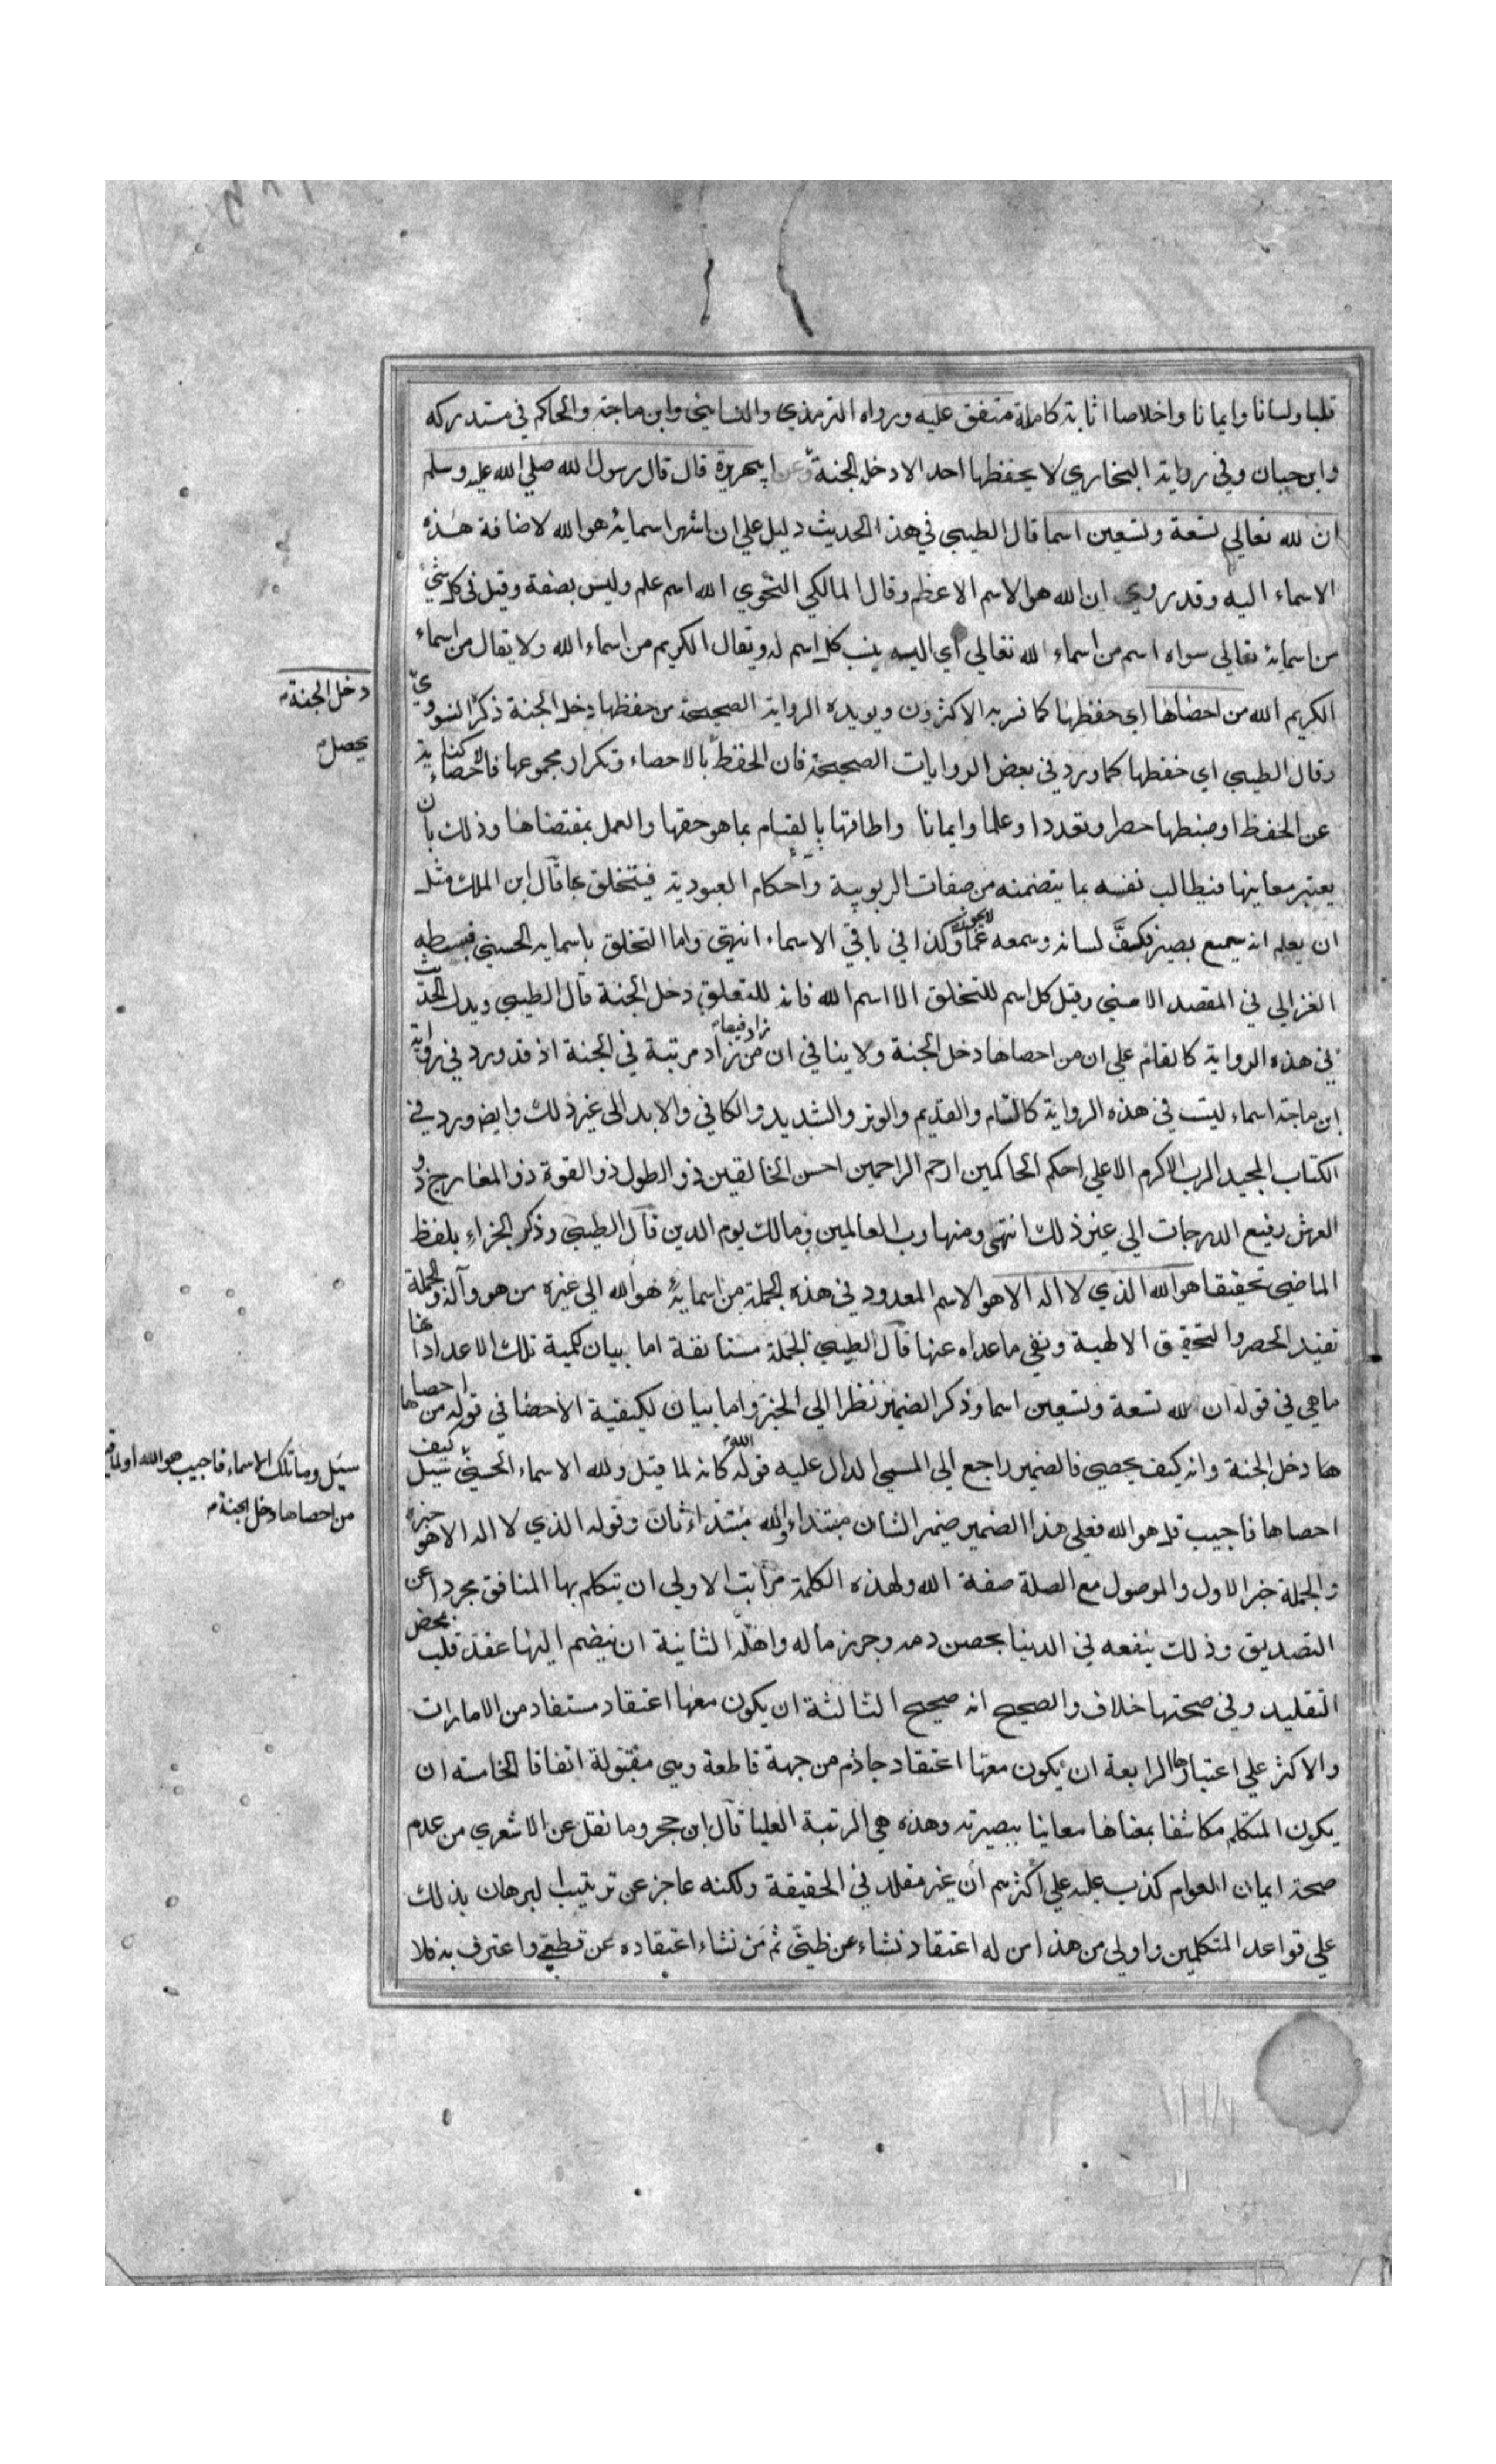 قلبا ولسانا وايمانا واخلاصا اثابة كاملة متفق عليه ورواه الترمذي والنسايي وابن ماجة والحاكم في مستدركه
وابن حبان وفي رواية البخاري لا يحفظها احد الا دخل الجنة وعن ابي هريرة قال قال رسول الله صلي الله عليه وسلم
ان لله تعالي تسعة وتسعين اسما قال الطيبي في هذا الحديث دليل علي ان اشهر اسمايه هو الله لاضافة هذه
الاسماء اليه وقد روي ان الله هو الاسم الاعظم وقال المالكي النحوي الله اسم علم وليس بصفة وقيل في كل شي
من اسمايه تعالي سواه اسم من اسماء الله تعالي أي اليه ينسب كل اسم له ويقال الكريم من اسماء الله ولا يقال من اسماء
الكريم الله من احصاها اي حفظها كما فسر به الاكثرون ويويده الرواية الصحيحة من حفظها دخل الجنة ذكره النووي
دخل الجنة
وقال الطيبي اي حفظها كما ورد في بعض الروايات الصحيحة فان الحفظ بالاحصاء وتكرار مجموعها فالاحصاء كناية
يحصل
عن الحفظ او ضبطها حصرا وتعددا وعلما وايمانا واطاقتها بالقيام بما هو حقها والعمل بمقتضاها وذلك بان
يعتبر معاينها فيطالب نفسه بما يتضمنه من صفات الربوبية وأحكام العبودية فيتخلق بها قال ابن الملك مثل
ان يعلم انه سميع بصير فكف لسانه وسمعه عما لا يجوز وكذا في باقي الاسماء انتهي واما التخلق باسمايه الحسني فبسطه
الغزالي في المقصد الاسني وقيل كل اسم للتخلق الا اسم الله فانه للتعلق دخل الجنة قال الطيبي ويدل الحديث
في هذه الرواية كالقائم علي ان من احصاها دخل الجنة ولا ينافي ان من زاد فيها زاد مرتبة في الجنة اذ قد ورد في رواية
ابن ماجة اسماء ليست في هذه الرواية كالتام والقديم والوتر والشديد والكافي والابد الي غير ذلك وايض ورد في
الكتاب المجيد الرب الاكرم الاعلي احكم الحاكمين ارحم الراحمين احسن الخالقين ذو الطول ذو القوة ذو المعارج ذو
العرش رفيع الدرجات الي غير ذلك انتهي ومنها رب العالمين ومالك يوم الدين قال الطيبي وذكر الجزاء بلفظ
الماضي تحقيقا هو الله الذي لا اله الا هو الاسم المعدود في هذه الجملة من اسمايه هو الله الي غيره من هو وآله والجملة
تفيد الحصر والتحقيق الالهية ونفي ما عداه عنها قال الطيبي الجملة مستانفة اما بيان كمية تلك الاعداد انها
ما هي في قوله ان لله تسعة وتسعين اسما وذكر الضمير نظرا الي الخبر واما بيان لكيفية الاحصا في قوله من احصا
ها دخل الجنة وانه كيف يحصي فالضمير راجع الي المسمي الدال عليه قوله الله كانه لما قيل ولله الاسماء الحسني سيل كيف
سيل وما تلك الاسماء فاجيب هو الله او لما
احصاها فاجيب قل هو الله فعلي هذا الضمير ضمير الشان مبتداء والله مبتداء ثان وقوله الذي لا اله الا هو خبره
من احصاها دخل الجنة
والجملة خبر الاول والموصول مع الصلة صفة الله ولهذه الكلمة مراتب الاولي ان يتكلم بها المنافق مجردا عن
التصديق وذلك ينفعه في الدنيا بحصن دمه وحرز ماله واهله الثانية ان ينضم اليها عقد قلب بمحض
التقليد وفي صحتها خلاف والصحيح انه صحيح الثالثة ان يكون معها اعتقاد مستفاد من الامارات
والاكثر علي اعتبارها الرابعة ان يكون معها اعتقاد جازم من جهة قاطعة وهي مقبولة اتفاقا الخامسة ان
يكون المتكلم مكاشفا بمعناها معاينا ببصيرته وهذه هي الرتبة العليا قال ابن حجر وما نقل عن الاشعري من عدم
صحة ايمان العوام كذب عليه علي أكثرهم ان غير مقلد في الحقيقة ولكنه عاجز عن ترتيب البرهان بذلك
علي قواعد المتكلمين واولي من هذا من له اعتقاد نشاء عن ظني ثم من نشاء اعتقاده عن قطعي واعترف به فلا